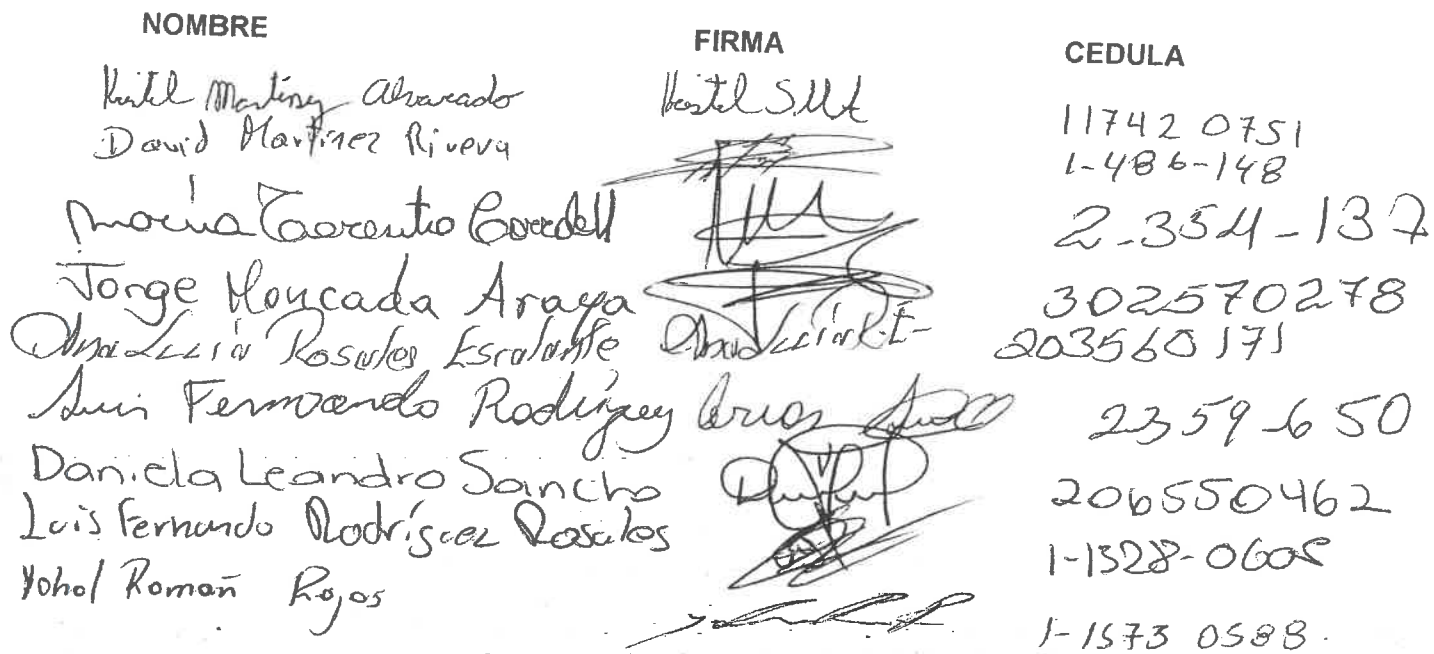 NOMBRE FIRMA CEDULA
Martínez Alvarado 11742 0751
David Martínez Rivera 1-486-148
2-354-137
Jorge Moncada Araya 302570278
Rosales Escalante 203560171
Luis Fernando Rodríguez Arias 2359-650
Daniela Leandro Sancho 206550462
Luis Fernando Rodríguez Rosales 1-1328-0605
Yohel Román Rojas 1-1573 0588